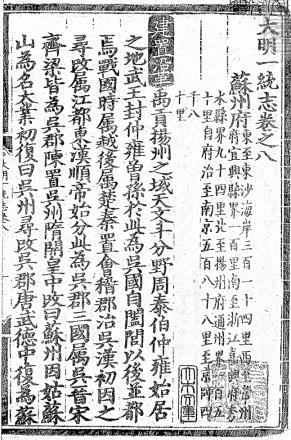 大明一統志卷之八
蘇州府
東至東沙海岸三百一十四里西至常州
府宜興縣界一百里南至浙江嘉興府秀
水縣界九十四里北至揚州府通州界百四
十里自府治至南京五百八十八里至京師四
千八
十里
建置沿革禹貢揚州之域天文斗分野周泰伯仲雍始居
之地武王封仲雍曾孫於此為吳國自闔閭以後並都
焉戰國時屬越後屬楚秦置會稽郡治吳漢初因之
尋改屬江都東漢順帝始分此為吳郡三國屬吳晉宋
齊梁皆為吳郡陳置吳州隋開皇中改曰蘇州因姑蘇
山為名大業初復曰吳州尋改吳郡唐武德中復為蘇